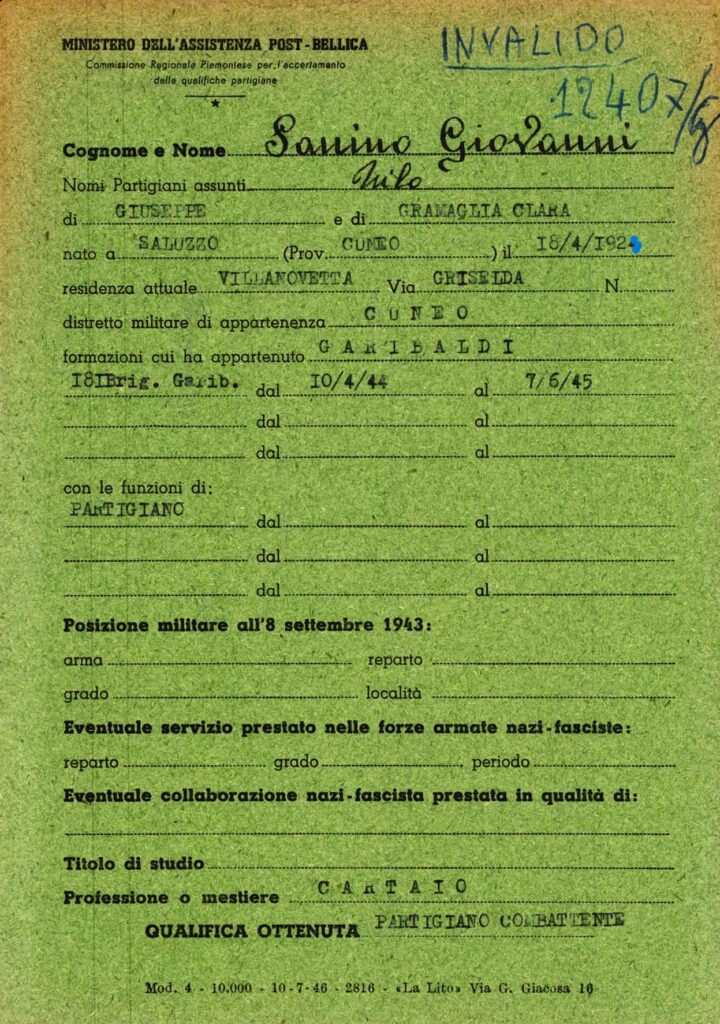 MINISTERO DELL'ASSISTENZA POST-BELLICA
Commissione Regionale Piemontese per l'accertamento
delle qualifiche partigiane
INVALIDO
12407/
Cognome e Nome Sanino Giovanni
Nomi Partigiani assunti Nilo
di GIUSEPPE e di GRAMAGLIA CLARA
nato a SALUZZO (Prov. CUNEO ) il 18/4/192
residenza attuale VILLANOVETTA Via GRISELDA N.
distretto militare di appartenenza CUNEO
formazioni cui ha appartenuto GARIBALDI
181Brig. Garib. dal 10/4/44 al 7/6/45
dal al
dal al
con le funzioni di:
PARTIGIANO dal al
dal al
dal al
Posizione militare all'8 settembre 1943:
arma reparto
grado località
Eventuale servizio prestato nelle forze armate nazi-fasciste:
reparto grado periodo
Eventuale collaborazione nazi-fascista prestata in qualità di:
Titolo di studio
Professione o mestiere CARTAIO
QUALIFICA OTTENUTA PARTIGIANO COMBATTENTE
Mod. 4 - 10.000 - 10-7-46 - 2816 - «La Lito» Via G. Giacosa 10